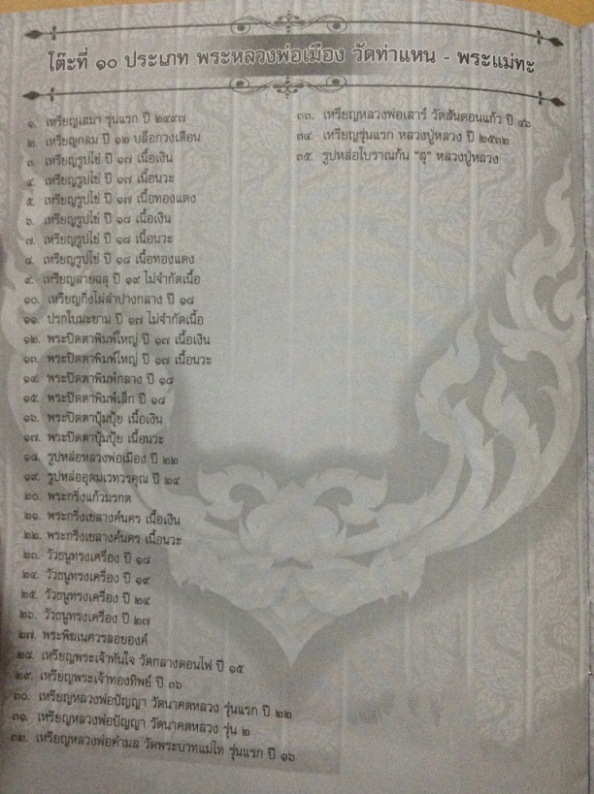 โต๊ะที่ ๑๐ ประเภท พระหลวงพ่อเมือง วัดท่าแหน - พระแม่ทะ
๑. เหรียญเสมา รุ่นแรก ปี ๒๔๙๗
๒. เหรียญกลม ปี ๑๒ บล็อกวงเดือน
๓. เหรียญรูปไข่ ปี ๑๗ เนื้อเงิน
๔. เหรียญรูปไข่ ปี ๑๗ เนื้อนวะ
๕. เหรียญรูปไข่ ปี ๑๗ เนื้อทองแดง
๖. เหรียญรูปไข่ ปี ๑๘ เนื้อเงิน
๗. เหรียญรูปไข่ ปี ๑๘ เนื้อนวะ
๘. เหรียญรูปไข่ ปี ๑๘ เนื้อทองแดง
๙. เหรียญลายฉลุ ปี ๑๙ ไม่จำกัดเนื้อ
๑๐. เหรียญกิ่งไผ่ลำปางกลาง ปี ๑๘
๑๑. ปรกใบมะขาม ปี ๑๗ ไม่จำกัดเนื้อ
๑๒. พระปิดตาพิมพ์ใหญ่ ปี ๑๗ เนื้อเงิน
๑๓. พระปิดตาพิมพ์ใหญ่ ปี ๑๗ เนื้อนวะ
๑๔. พระปิดตาพิมพ์กลาง ปี ๑๘
๑๕. พระปิดตาพิมพ์เล็ก ปี ๑๘
๑๖. พระปิดตาปุ้มปุ้ย เนื้อเงิน
๑๗. พระปิดตาปุ้มปุ้ย เนื้อนวะ
๑๘. รูปหล่อหลวงพ่อเมือง ปี ๒๒
๑๙. รูปหล่ออุดมเวทวรคุณ ปี ๒๔
๒๐. พระกริ่งแก้วมรกต
๒๑. พระกริ่งเขลางค์นคร เนื้อเงิน
๒๒. พระกริ่งเขลางค์นคร เนื้อนวะ
๒๓. วัวธนูทรงเครื่อง ปี ๑๘
๒๔. วัวธนูทรงเครื่อง ปี ๑๙
๒๕. วัวธนูทรงเครื่อง ปี ๒๔
๒๖. วัวธนูทรงเครื่อง ปี ๒๗
๒๗. พระพิฆเนศวรลอยองค์
๒๘. เหรียญพระเจ้าทันใจ วัดกลางดอนไฟ ปี ๑๕
๒๙. เหรียญพระเจ้าทองทิพย์ ปี ๓๖
๓๐. เหรียญหลวงพ่อปัญญา วัดนาคตหลวง รุ่นแรก ปี ๒๒
๓๑. เหรียญหลวงพ่อปัญญา วัดนาคตหลวง รุ่น ๒
๓๒. เหรียญหลวงพ่อคำมล วัดพระบาทแม่ไท รุ่นแรก ปี ๑๖
๓๓. เหรียญหลวงพ่อเสาร์ วัดสันดอนแก้ว ปี ๔๖
๓๔. เหรียญรุ่นแรก หลวงปู่หลวง ปี ๒๕๓๒
๓๕. รูปหล่อโบราณก้น "สุ" หลวงปู่หลวง